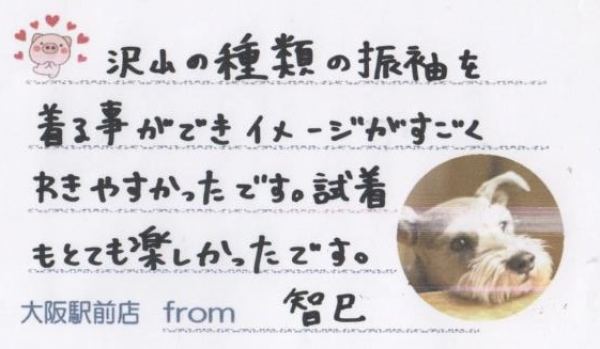 沢山の種類の振袖を
着る事ができイメージがすごく
わきやすかったです。試着
もとても楽しかったです。
大阪駅前店 from 智巳